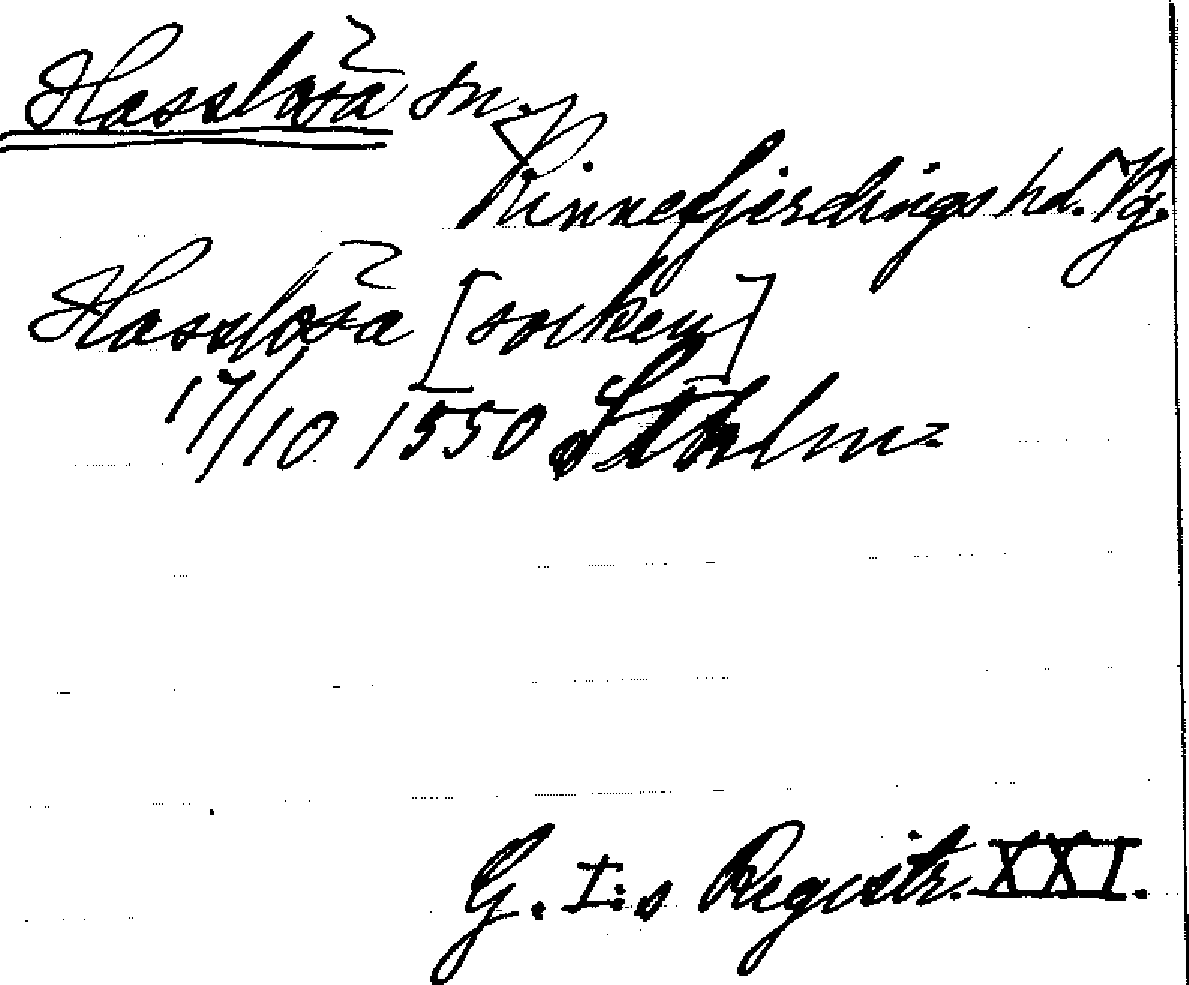 Hasslösa sn.
Kinnefjerdings hd. Vg.
Hasslösa [socken]
17/10 1550 Sthlm
G. I:s Registr. XXI.